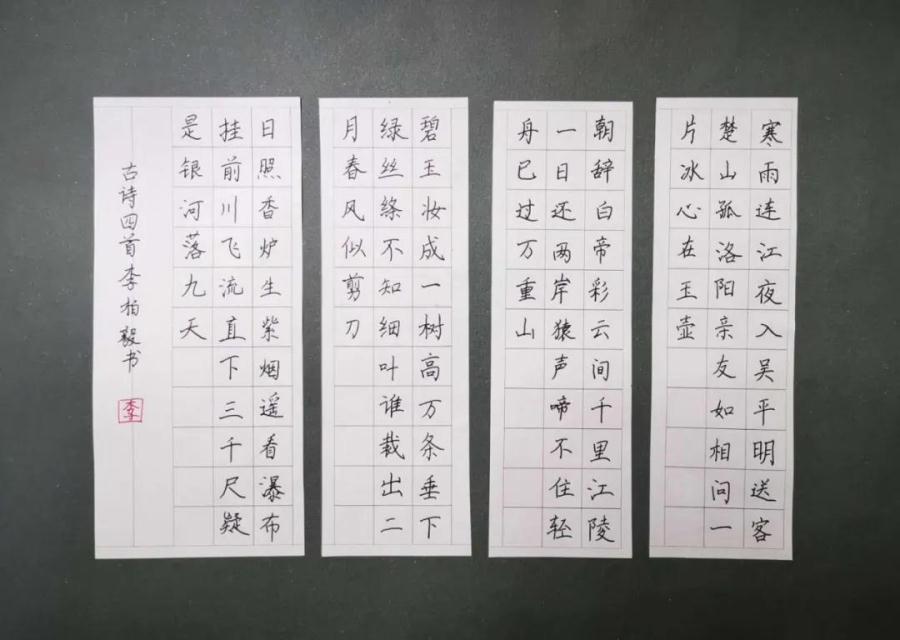 寒雨连江夜入吴平明送客
楚山孤洛阳亲友如相问一
片冰心在玉壶
朝辞白帝彩云间千里江陵
一日还两岸猿声啼不住轻
舟已过万重山
碧玉妆成一树高万条垂下
绿丝绦不知细叶谁裁出二
月春风似剪刀
日照香炉生紫烟遥看瀑布
挂前川飞流直下三千尺疑
是银河落九天
古诗四首李柏毅书
李